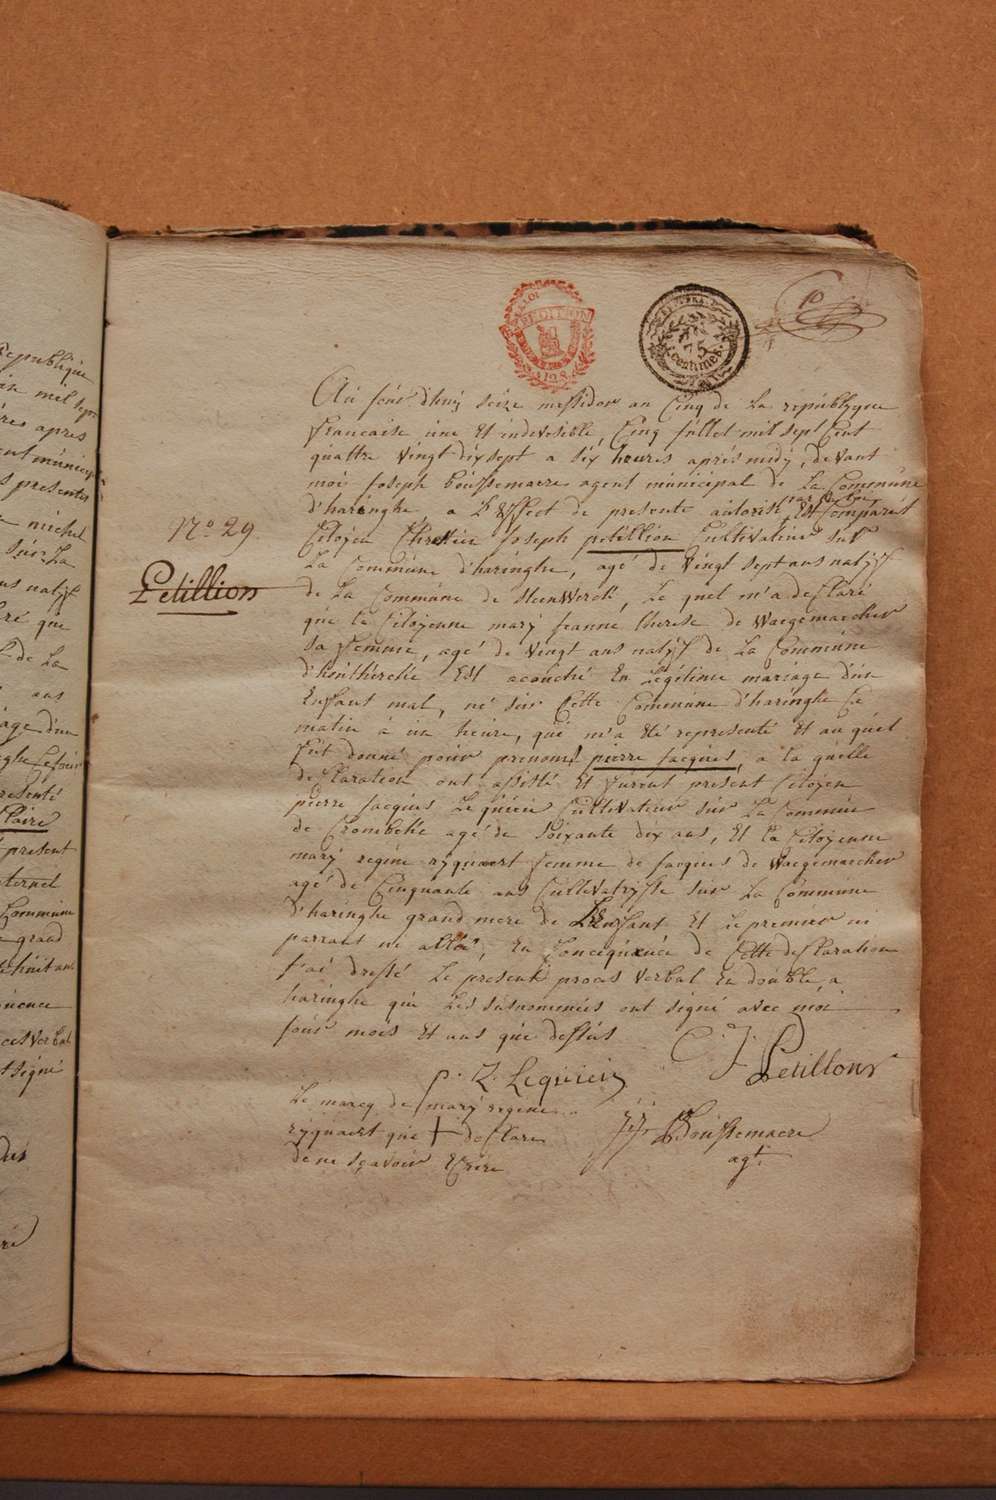 Au jour d'huÿ seize messidor an Cinq de La republyque
francaise une Et indivisible, Cinq jullet mil sept Cent
quattre vingt dix sept a six heures apres midÿ, devant
moi joseph boussemaere agent municipal de La Commune
d'haringhe, a L'Effect de presente autorisé par la loi, Est Comparut
N.o 29
Citoÿen joseph petillion Cultivateur sur
La Commune d'haringhe, agé de vingt sept ans natÿf
Petillion
de La Commune de steenwerck, Le quel m'a desclaré
que la Citoÿenne marÿ jeanne therese de Waegemaecker
sa femme, agé de vingt ans natÿf de La Commune
d'hontscherche Est acouché En Legitime mariage d'un
Enfant mal, né sur Cette Commune d'haringhe Ce
matin à un heure, qui m'a Eté representé Et au quel
fut donné pour prenoms pierre jacques, a la quelle
desclaration ont assisté Et furent present Citoÿen
pierre jacques Lequien Cultivateur sur La Commune
de Crombeke agé de soixante dix ans, Et La Citoÿenne
marÿ regine rÿquaert femme de jacques de Waegemaecker
agé de Cinquante ans Cultivatrÿsse sur La Commune
d'haringhe grand mere de L'Enfant Et Le premier ni
parrant ni allié, En Concequence de Cette desclaration
j'ai dressé Le present proces verbal En double, a
haringhe que Les susnommés ont signé avec moi
jour mois Et ans que dessus
C. J. Petillons
P. J. Lequien
Le marcq de marÿ regine
rÿquaert qui + desclare
de ne sçavoir Ecrire
J. J. Boussemaere
agt.